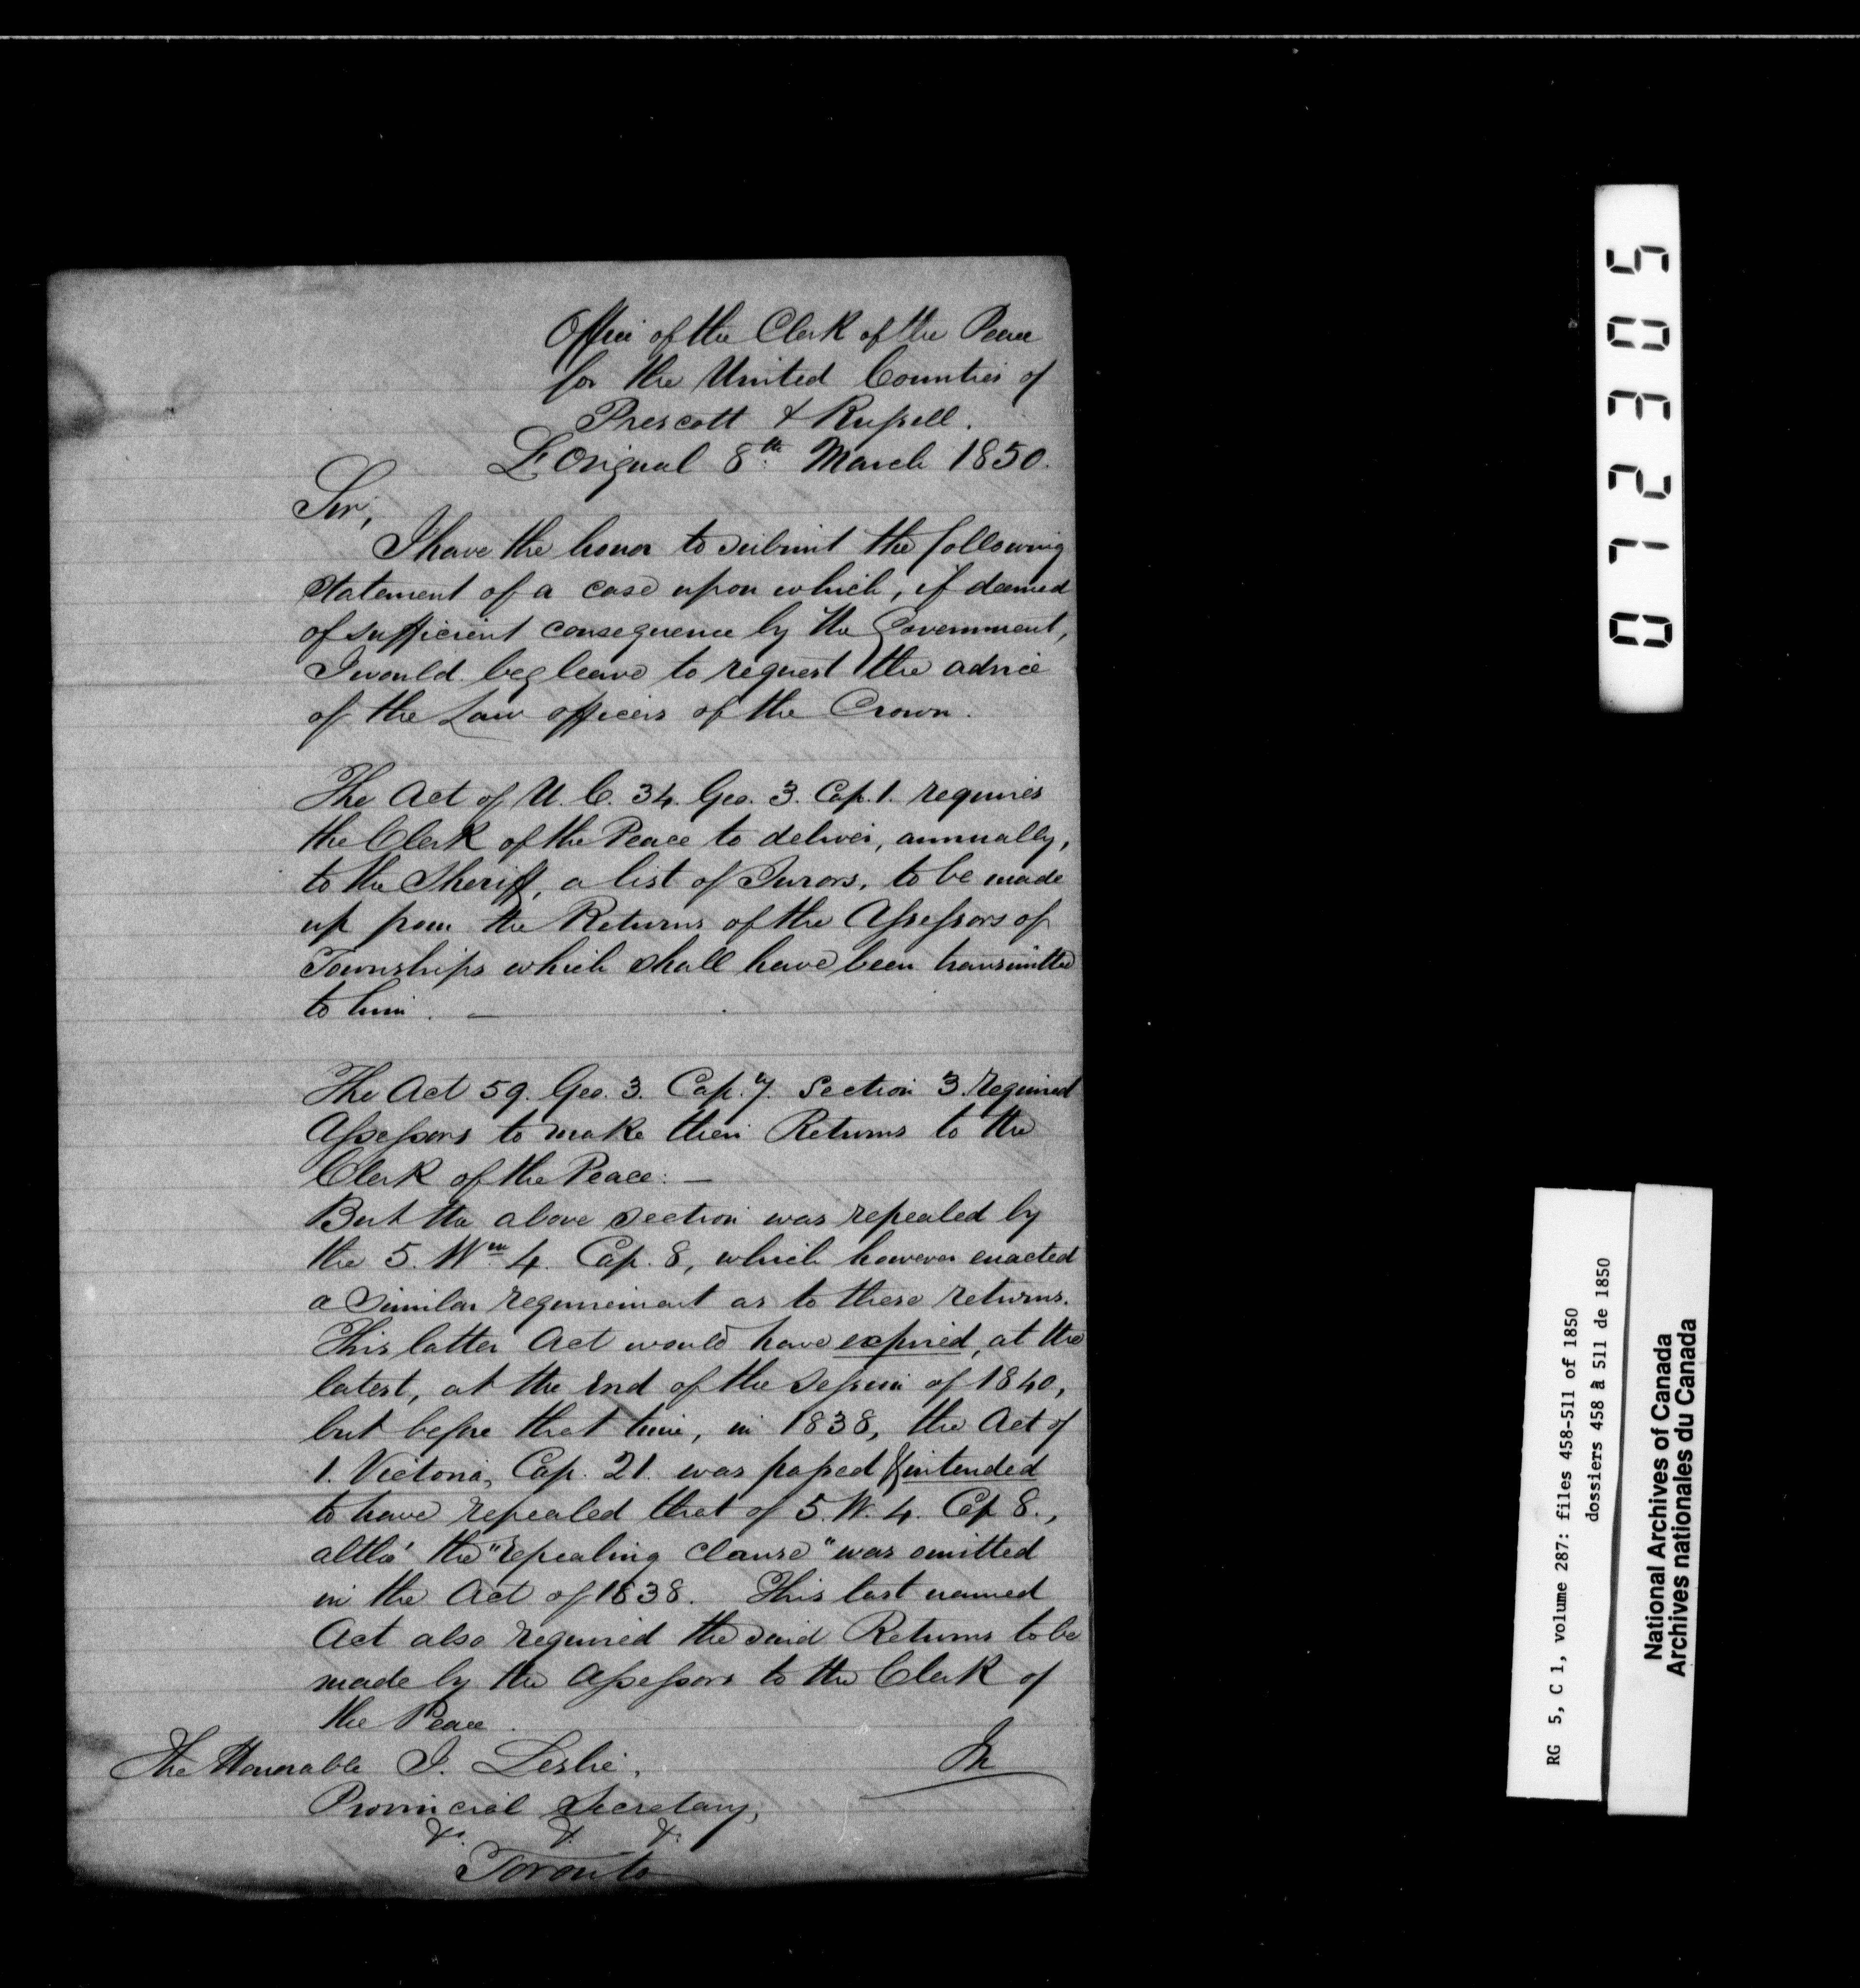 Office of the Clerk of the Peace
for the United Counties of
Prescott & Russell.
L'Orignal 8th March 1850.
Sir,
I have the honor to submit the following
statement of a case upon which, if deemed
of sufficient consequence by the Government,
I would beg leave to request the advice
of the Law officers of the Crown.
The Act of U. C. 34. Geo. 3. Cap. 1. requires
the Clerk of the Peace to deliver, annually,
to the Sheriff, a list of Jurors, to be made
up from the Returns of the Assessors of
Townships which shall have been transmitted
to him. —
The Act 59. Geo. 3. Cap. 7. Section 3. required
Assessors to make their Returns to the
Clerk of the Peace: —
But the above section was repealed by
the 5. Wm 4. Cap. 8, which however enacted
a similar requirement as to these returns.
This latter Act would have expired, at the
latest, at the end of the Session of 1840,
but before that time, in 1838, the Act of
1. Victoria, Cap. 21. was passed & intended
to have repealed that of 5. W. 4. Cap 8.,
altho' the "repealing clause" was omitted
in the Act of 1838. This last named
Act also required the said Returns to be
made by the Assessors to the Clerk of
the Peace.
In
The Honorable J. Leslie,
Provincial Secretary,
&. &. &.
Toronto
072305
RG 5, C 1, volume 287: files 458-511 of 1850
dossiers 458 à 511 de 1850
National Archives of Canada
Archives nationales du Canada